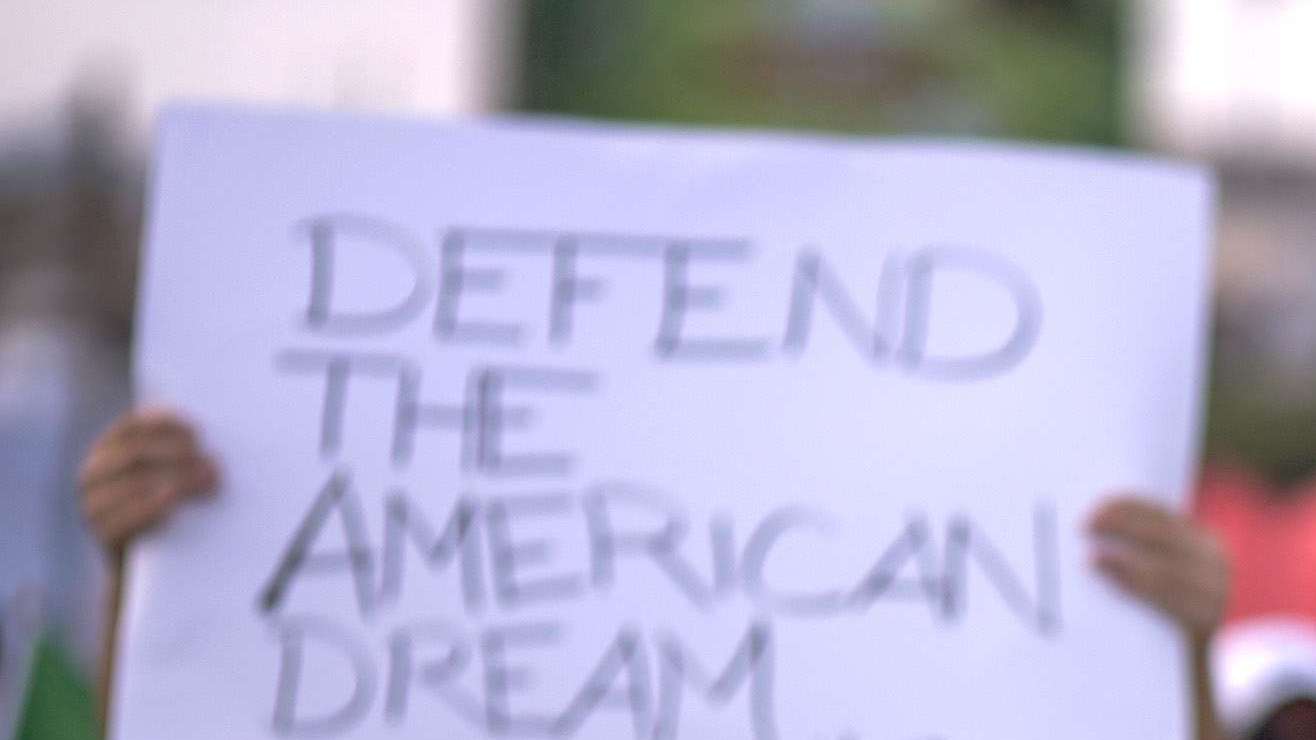 DEFEND
THE
AMERICAN
DREAM